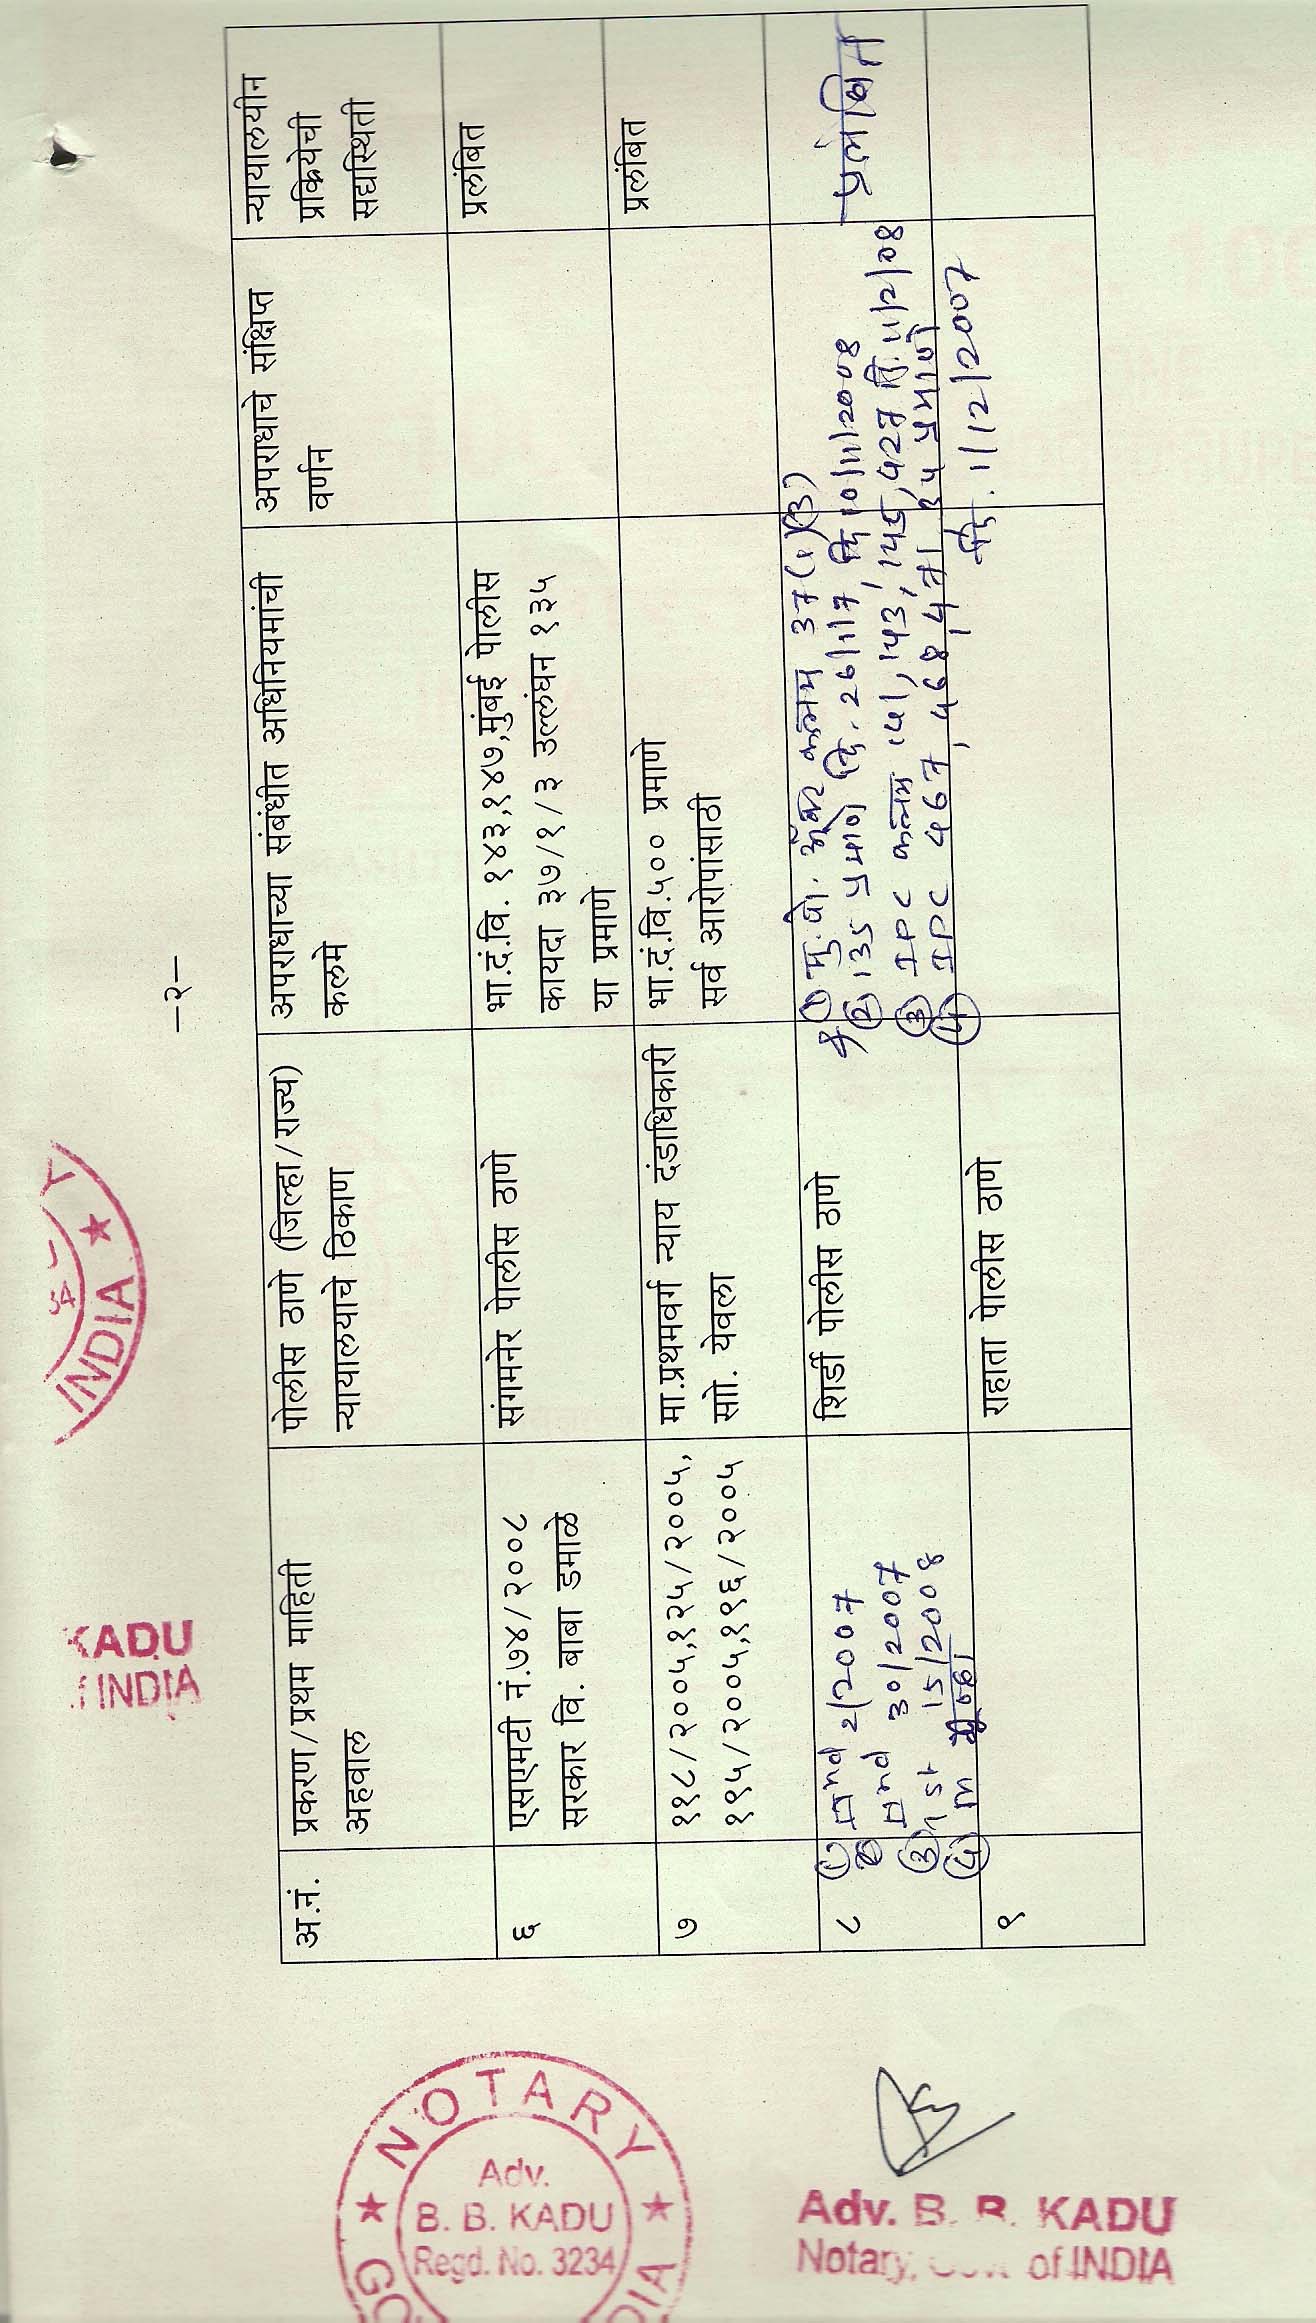 -२-
अ.नं.
प्रकरण/प्रथम माहिती
अहवाल
पोलीस ठाणे (जिल्हा/राज्य)
न्यायालयाचे ठिकाण
अपराधाच्या संबंधीत अधिनियमांची
कलमे
अपराधाचे संक्षिप्त
वर्णन
न्यायालयीन
प्रक्रियेची
सद्यस्थिती
६
एसएमटी नं.७४/२००८
सरकार वि. बाबा डमाळे
संगमनेर पोलीस ठाणे
भा.दं.वि. १४३,१४७,मुंबई पोलीस
कायदा ३७/१/३ उल्लंघन १३५
या प्रमाणे
प्रलंबित
७
११८/२००५,१२५/२००५,
१९५/२००५,१९६/२००५
मा.प्रथमवर्ग न्याय दंडाधिकारी
सो. येवला
भा.दं.वि.५०० प्रमाणे
सर्व आरोपांसाठी
प्रलंबित
८
① 2/2007
30/2007
③ 1st 15/2008
④ m
शिर्डी पोलीस ठाणे
① मु.पो. ॲक्ट कलम 37(1)(3)
② 135 प्रमाणे दि. 26/1/7, दि 10/11/2008
③ IPC कलम 141, 143, 145, 427 दि. 11/2/08
④ IPC 467, 468 34 प्रमाणे
दि. 1/12/2007
प्रलंबित
९
राहाता पोलीस ठाणे
KADU
INDIA
34
INDIA
NOTARY
Adv.
B. B. KADU
Regd. No. 3234
Adv. B. B. KADU
Notary, of INDIA